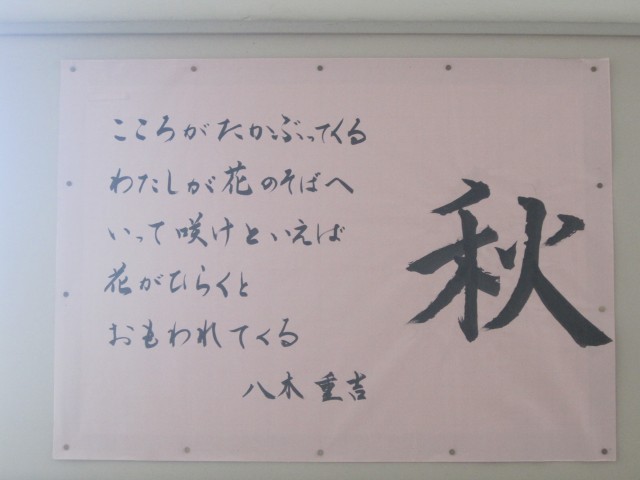 秋
こころがたかぶってくる
わたしが花のそばへ
いって咲けといえば
花がひらくと
おもわれてくる
八木重吉